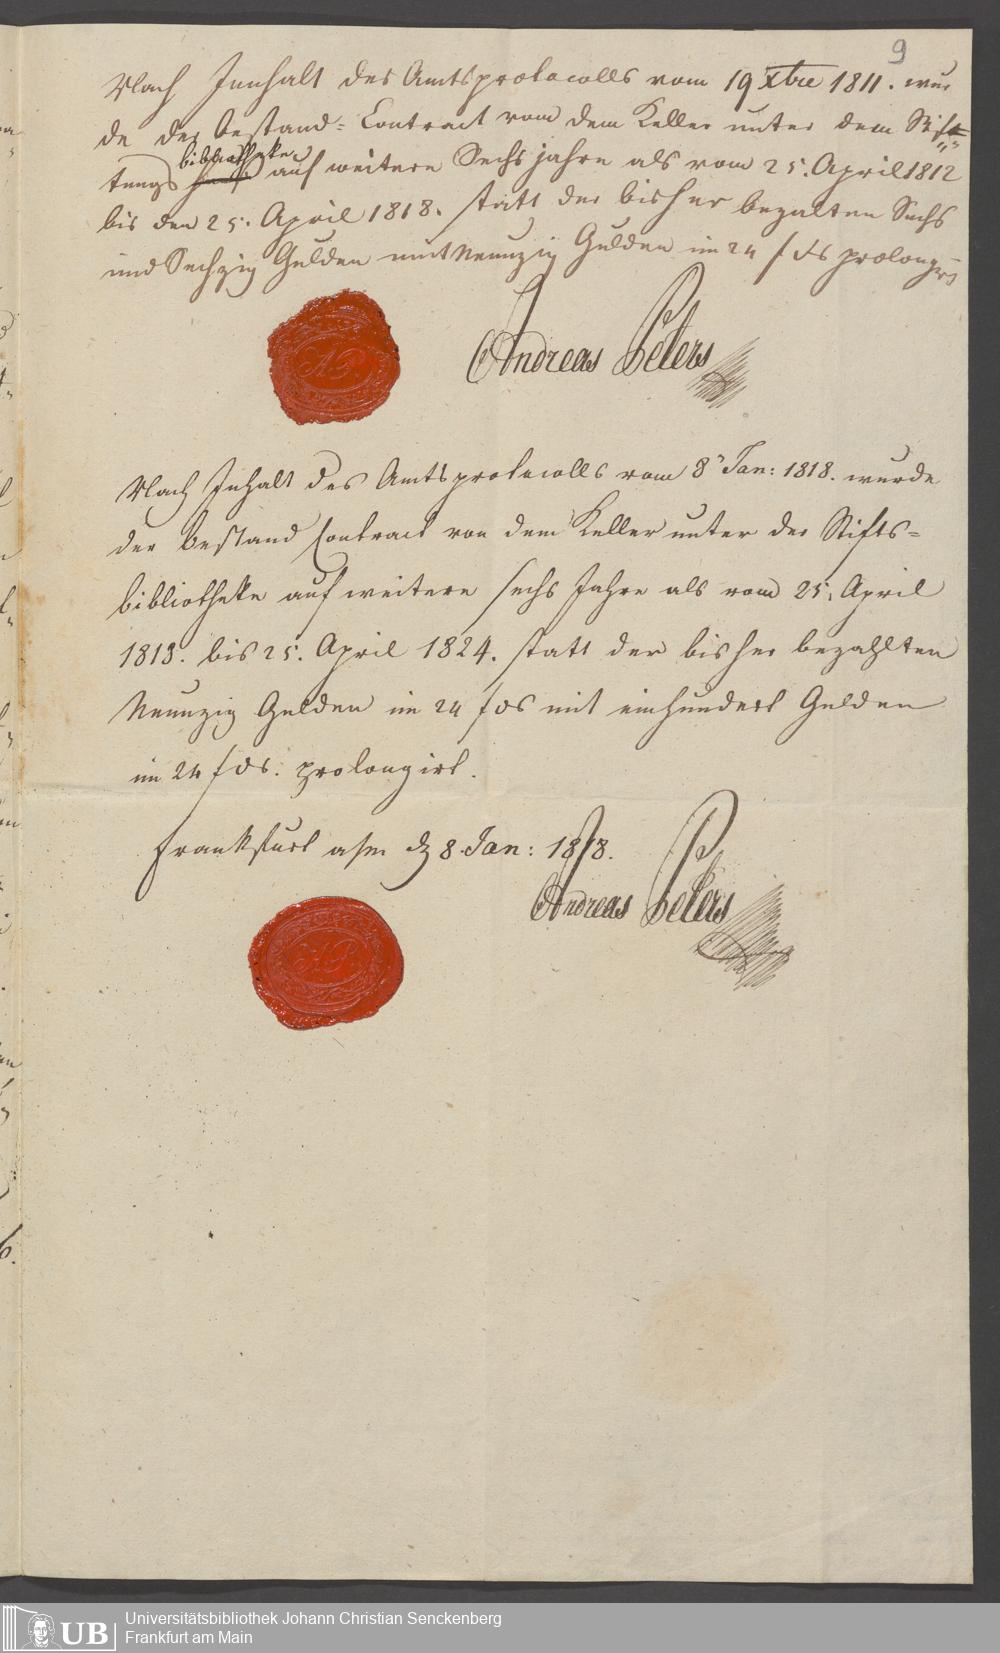 9
Nach Innhalt des Amtsprotocolls vom 19 Xbre 1811. wur
de der Bestand-Contract vom dem Keller unter dem Stif-
bibliotheke
tungs auf weitere Sechs jahre als vom 25. April 1812
bis den 25. April 1818. statt der bisher bezalten Sechs
und Sechzig Gulden mit Neunzig Gulden im 24 f fs prolongirt
A.P.
Andreas Peters
Nach Inhalt des Amtsprotocolls vom 8 Jan: 1818. wurde
der Bestand Contract von dem Keller unter der Stifts-
bibliotheke auf weitere sechs Jahre als vom 25. April
1818. bis 25. April 1824. statt der bisher bezahlten
Neunzig Gulden im 24 f fs mit einhundert Gulden
im 24 f fs. prolongirt.
Frankfurt a/m d 8. Jan: 1818.
Andreas Peters
A.P.
UB
Universitätsbibliothek Johann Christian Senckenberg
Frankfurt am Main